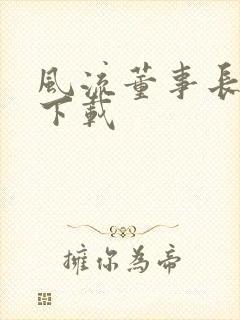 風流董事長
下載
擁你為帝